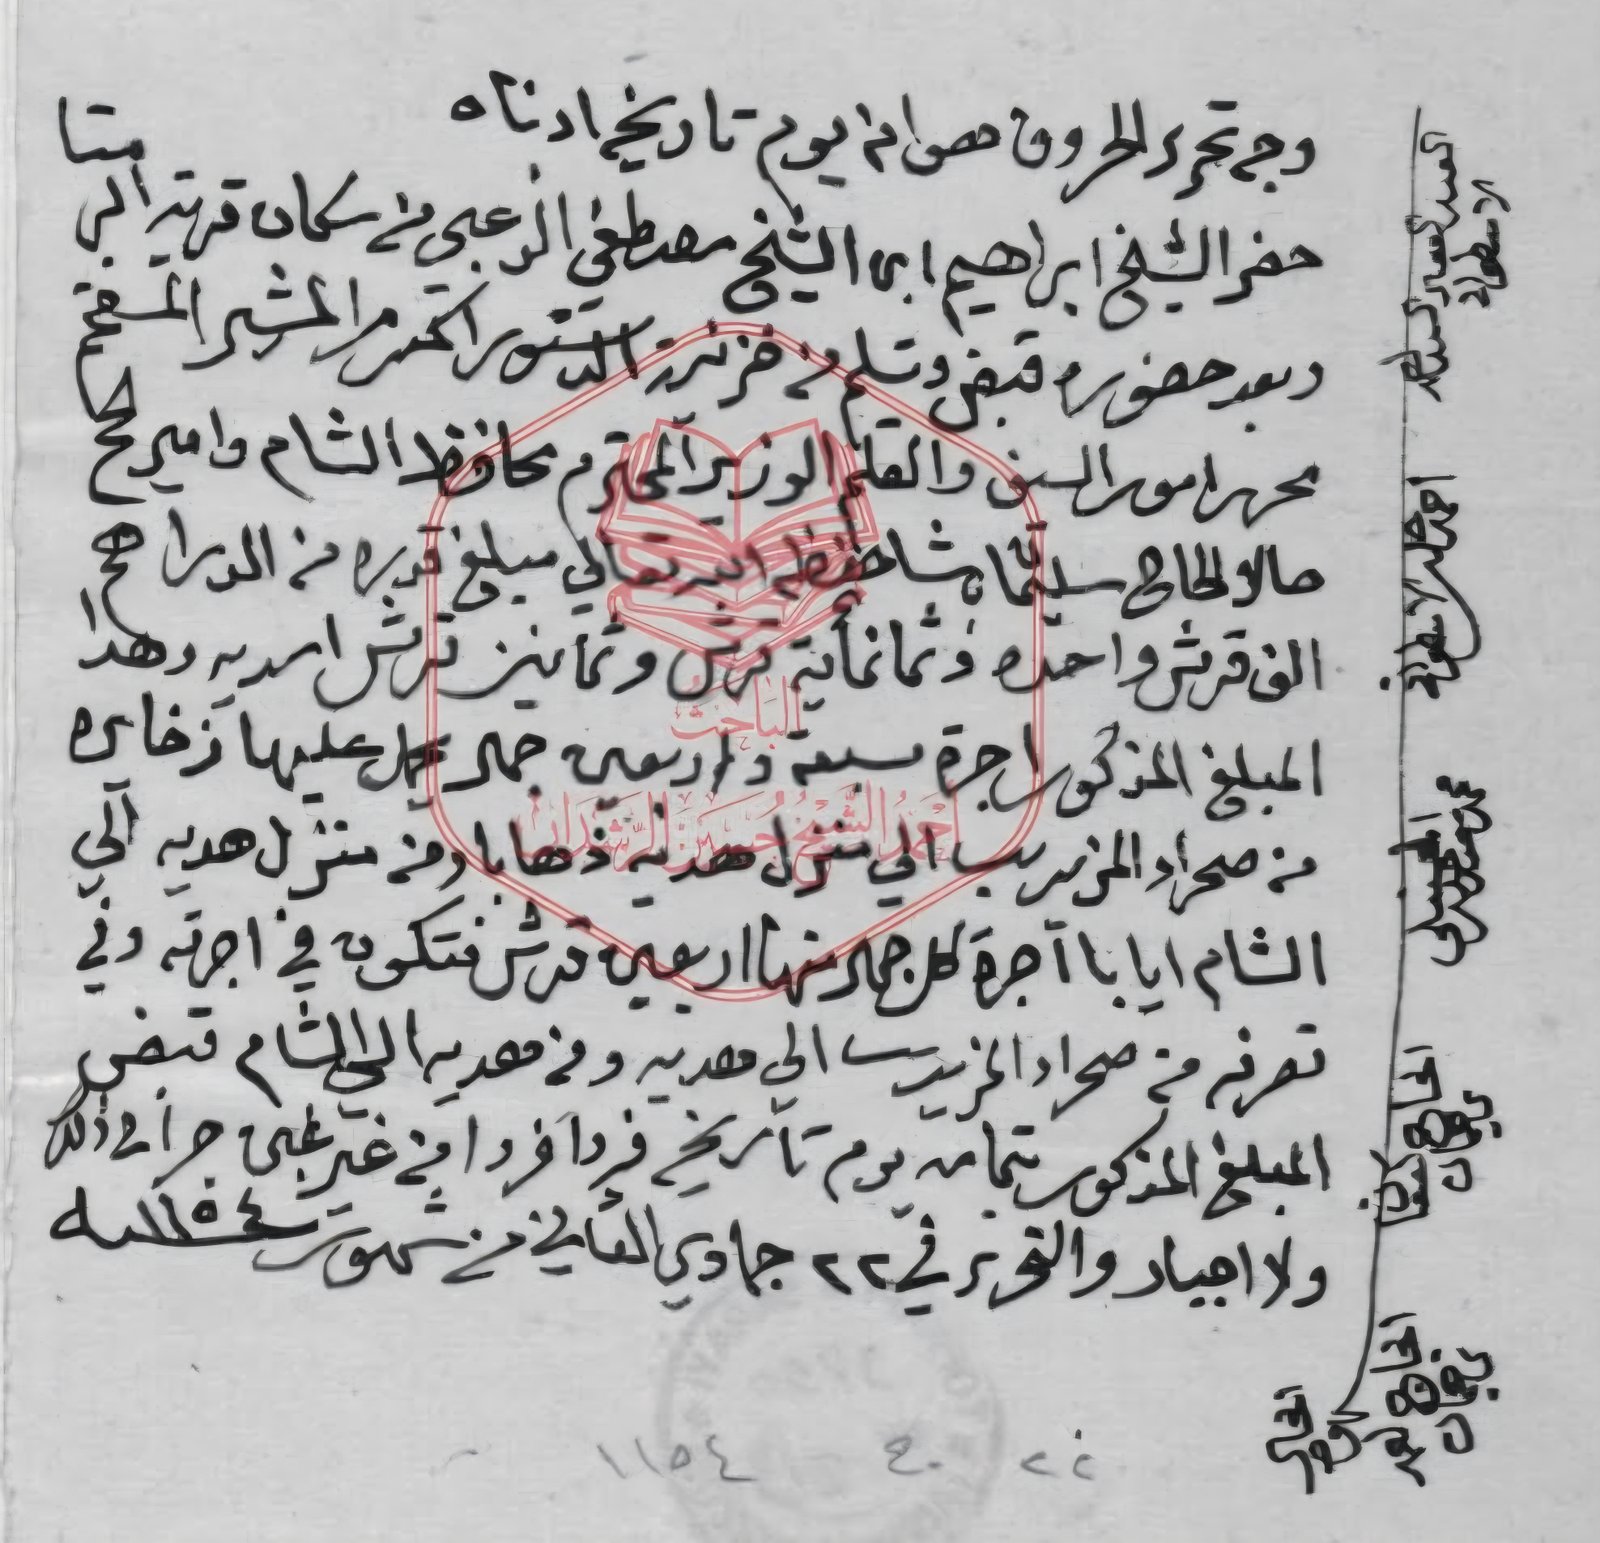 وجه تحرير الحروف هو انه يوم تاريخه ادناه
حضر الشيخ ابراهيم ابن الشيخ مصطفى الزعبي من سكان قرية
وبعد حضوره قبض وتسلم من خزينة الدستور المكرم المشير المفخم
محرر امور السيف والقلم الوزير المحترم محافظ الشام وامير الحج
حالا الحاج سليمان باشا حفظه الله تعالي مبلغ قدره من الدراهم
الف قرش واحده وثمانماية قرش وثمانين قرش اسديه وهدا
المبلغ المذكور اجرة سبعة واربعين جمل يحمل عليها ذخايره
من صحراء المزيريب الي منزل هديه ذهابا ومن منزل هديه الي
الشام ايابا آجرة كل جمل منها اربعين قرش فتكون في اجرته وفي
تعرفه من صحراء المزيريب الي هديه ومن هديه الي الشام قبض
المبلغ المذكور بتمامه يوم تاريخه فردا فردا من غير غبن جرا في ذلك
ولا اجبار والتحرير في ٢٢ جمادي الثاني من شهور سنة ١١٥٤
احمد
الحاج
الحاج
٢٢ ١١٥٤
الباحث
احمد الشيخ حسين الرشيدات